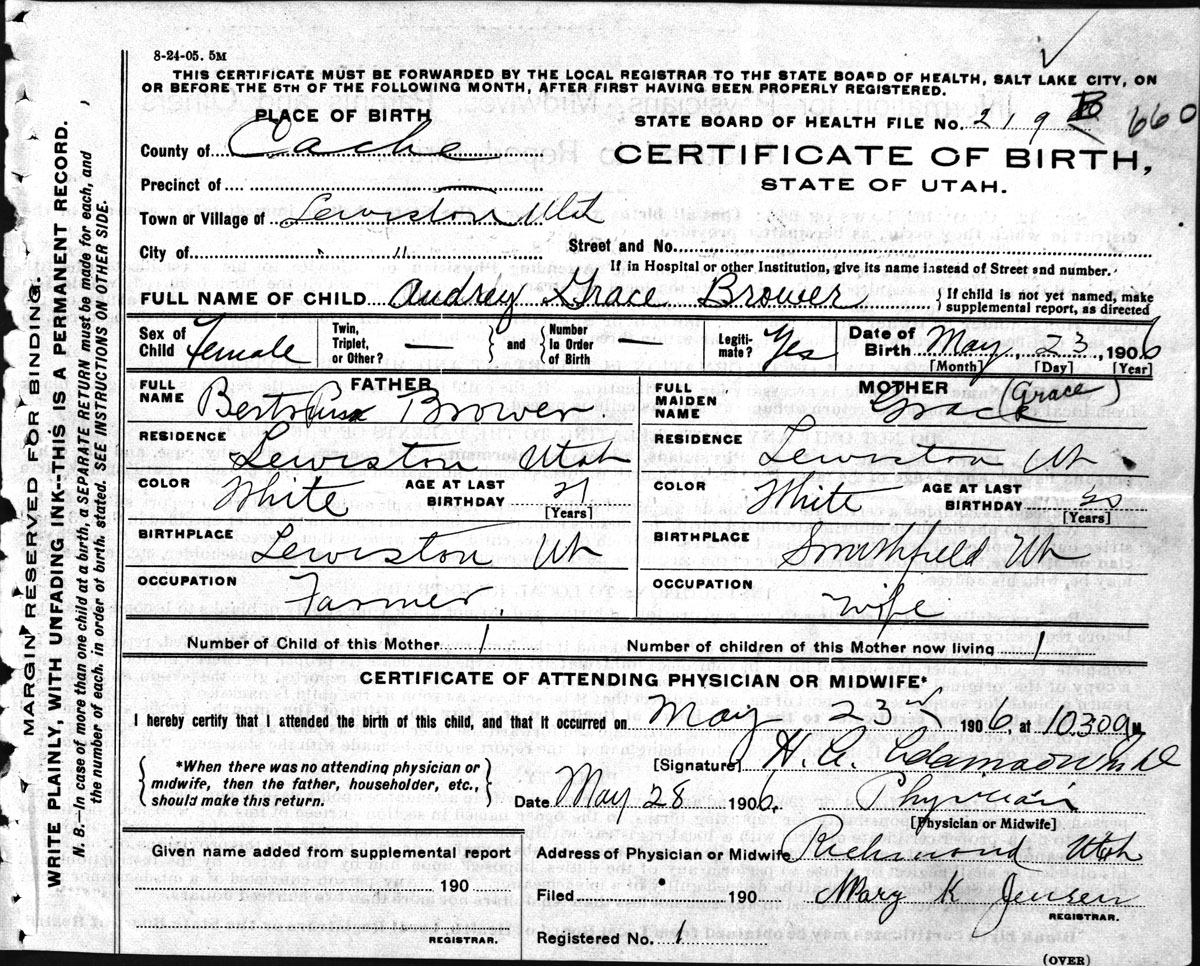 8-24-05. 5M
THIS CERTIFICATE MUST BE FORWARDED BY THE LOCAL REGISTRAR TO THE STATE BOARD OF HEALTH, SALT LAKE CITY, ON
OR BEFORE THE 5TH OF THE FOLLOWING MONTH, AFTER FIRST HAVING BEEN PROPERLY REGISTERED.
PLACE OF BIRTH
STATE BOARD OF HEALTH FILE No. 219 660
County of Cache
CERTIFICATE OF BIRTH,
STATE OF UTAH.
Precinct of
Town or Village of Lewiston Utah
City of "
Street and No.
If in Hospital or other Institution, give its name instead of Street and number.
FULL NAME OF CHILD Audrey Grace Brower
{If child is not yet named, make
supplemental report, as directed
Sex of Child Female
Twin, Triplet, or Other? — } and { Number In Order of Birth —
Legiti-mate? Yes
Date of Birth May 23, 1906
[Month] [Day] [Year]
FATHER
FULL NAME Brower
RESIDENCE Lewiston Utah
COLOR White AGE AT LAST BIRTHDAY 21
[Years]
BIRTHPLACE Lewiston Ut
OCCUPATION Farmer
MOTHER
FULL MAIDEN NAME (Grace)
RESIDENCE Lewiston Ut
COLOR White AGE AT LAST BIRTHDAY 20
[Years]
BIRTHPLACE Smithfield Ut
OCCUPATION wife
Number of Child of this Mother 1 Number of children of this Mother now living 1
CERTIFICATE OF ATTENDING PHYSICIAN OR MIDWIFE*
I hereby certify that I attended the birth of this child, and that it occurred on May 23rd 1906, at 1030 a M.
{*When there was no attending physician or
midwife, then the father, householder, etc.,
should make this return.}
[Signature] H. A. Adamson M D
Date May 28 1906. Physician
[Physician or Midwife]
Given name added from supplemental report
190
REGISTRAR.
Address of Physician or Midwife Richmond Utah
Filed 190 Mary K Jensen
REGISTRAR.
Registered No. 1
(OVER)
MARGIN RESERVED FOR BINDING.
WRITE PLAINLY, WITH UNFADING INK--THIS IS A PERMANENT RECORD.
N. B.—In case of more than one child at a birth, a SEPARATE RETURN must be made for each, and
the number of each, in order of birth, stated. SEE INSTRUCTIONS ON OTHER SIDE.